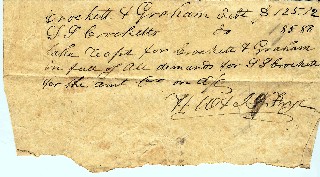 Crockett & Graham Debt $ 125.12
S P Crocketts do 85.88
take Recpt for Crockett & Graham
in full of All demands for S P Crockett
for the amt